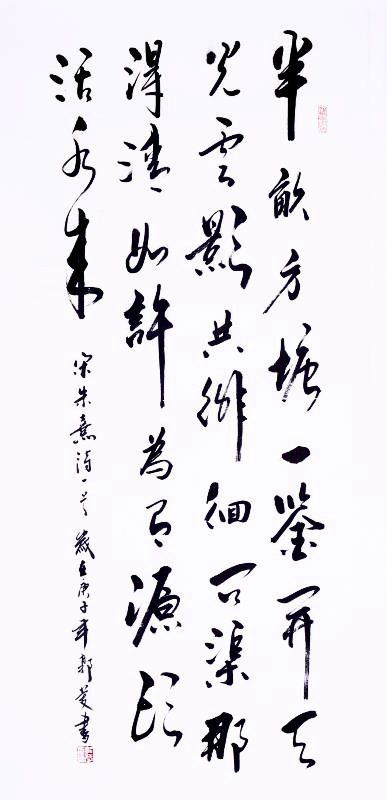 半畝方塘一鑒開天
光雲影共徘徊問渠那
得清如許為有源頭
活水來
宋朱熹詩一首 歲在庚子年 郭蒼書